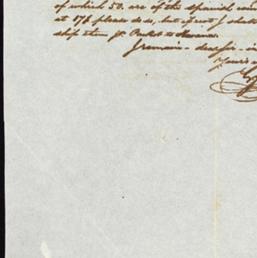 of which 50. are of the spanish
at 17/6 please do so, but if not I shall
ship them pr. Packet to Havana.
I remain - dear sir -
Yours